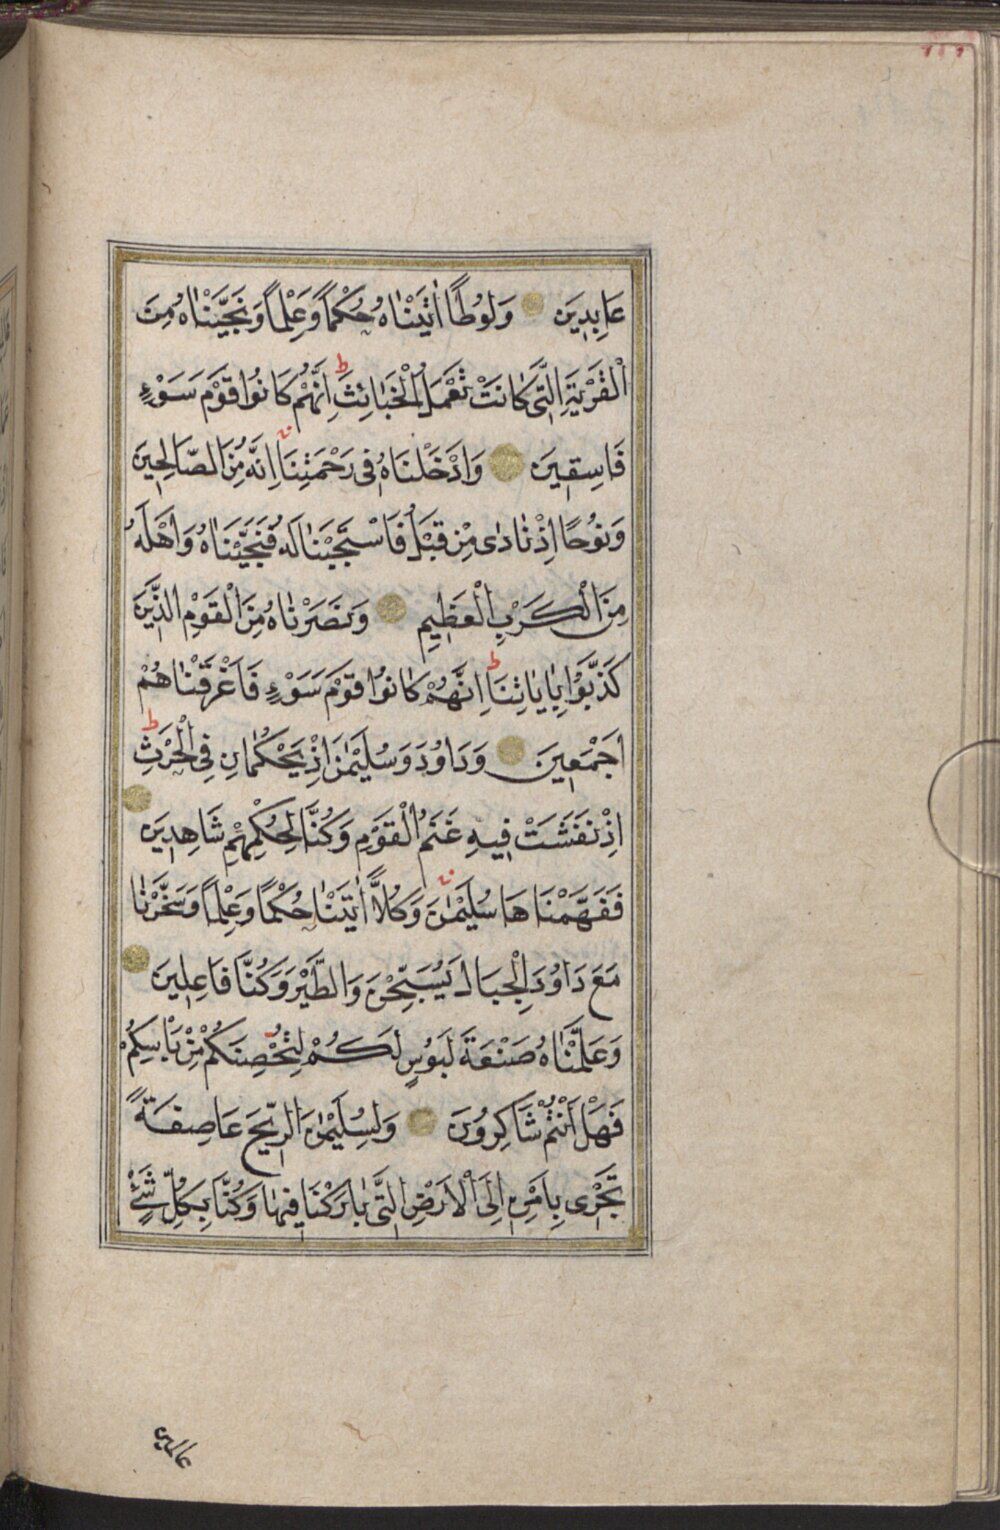 عَابِدِينَ وَلُوطًا اٰتَيْنَاهُ حُكْمًا وَعِلْمًا وَنَجَّيْنَاهُ مِنَ
الْقَرْيَةِ الَّتِى كَانَتْ تَعْمَلُ الْخَبَائِثَ ط اِنَّهُمْ كَانُوا قَوْمَ سَوْءٍ
فَاسِقِينَ وَاَدْخَلْنَاهُ فِى رَحْمَتِنَا اِنَّهُ مِنَ الصَّالِحِينَ
وَنُوحًا اِذْ نَادٰى مِنْ قَبْلُ فَاسْتَجَبْنَا لَهُ فَنَجَّيْنَاهُ وَاَهْلَهُ
مِنَ الْكَرْبِ الْعَظِيمِ وَنَصَرْنَاهُ مِنَ الْقَوْمِ الَّذِينَ
كَذَّبُوا بِاٰيَاتِنَا ط اِنَّهُمْ كَانُوا قَوْمَ سَوْءٍ فَاَغْرَقْنَاهُمْ
اَجْمَعِينَ وَدَاوُدَ وَسُلَيْمٰنَ اِذْ يَحْكُمَانِ فِى الْحَرْثِ ط
اِذْ نَفَشَتْ فِيهِ غَنَمُ الْقَوْمِ وَكُنَّا لِحُكْمِهِمْ شَاهِدِينَ
فَفَهَّمْنَاهَا سُلَيْمٰنَ وَكُلًّا اٰتَيْنَا حُكْمًا وَعِلْمًا وَسَخَّرْنَا
مَعَ دَاوُدَ الْجِبَالَ يُسَبِّحْنَ وَالطَّيْرَ وَكُنَّا فَاعِلِينَ
وَعَلَّمْنَاهُ صَنْعَةَ لَبُوسٍ لَكُمْ لِتُحْصِنَكُمْ مِنْ بَاْسِكُمْ
فَهَلْ اَنْتُمْ شَاكِرُونَ وَلِسُلَيْمٰنَ الرِّيحَ عَاصِفَةً
تَجْرِى بِاَمْرِهِ اِلَى الْاَرْضِ الَّتِى بَارَكْنَا فِيهَا وَكُنَّا بِكُلِّ شَىْءٍ
عالمين